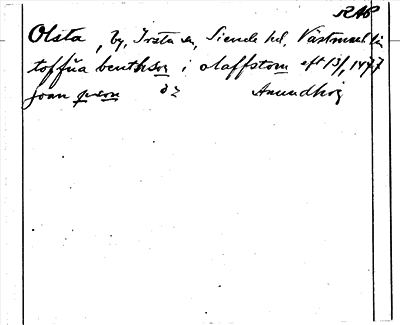 RAP
Olsta, by, Irsta sn, Siende hd, Västmanl. län
toffüa bentsson i olaffstom eft 13/1 1477
joan person dz Anundhög